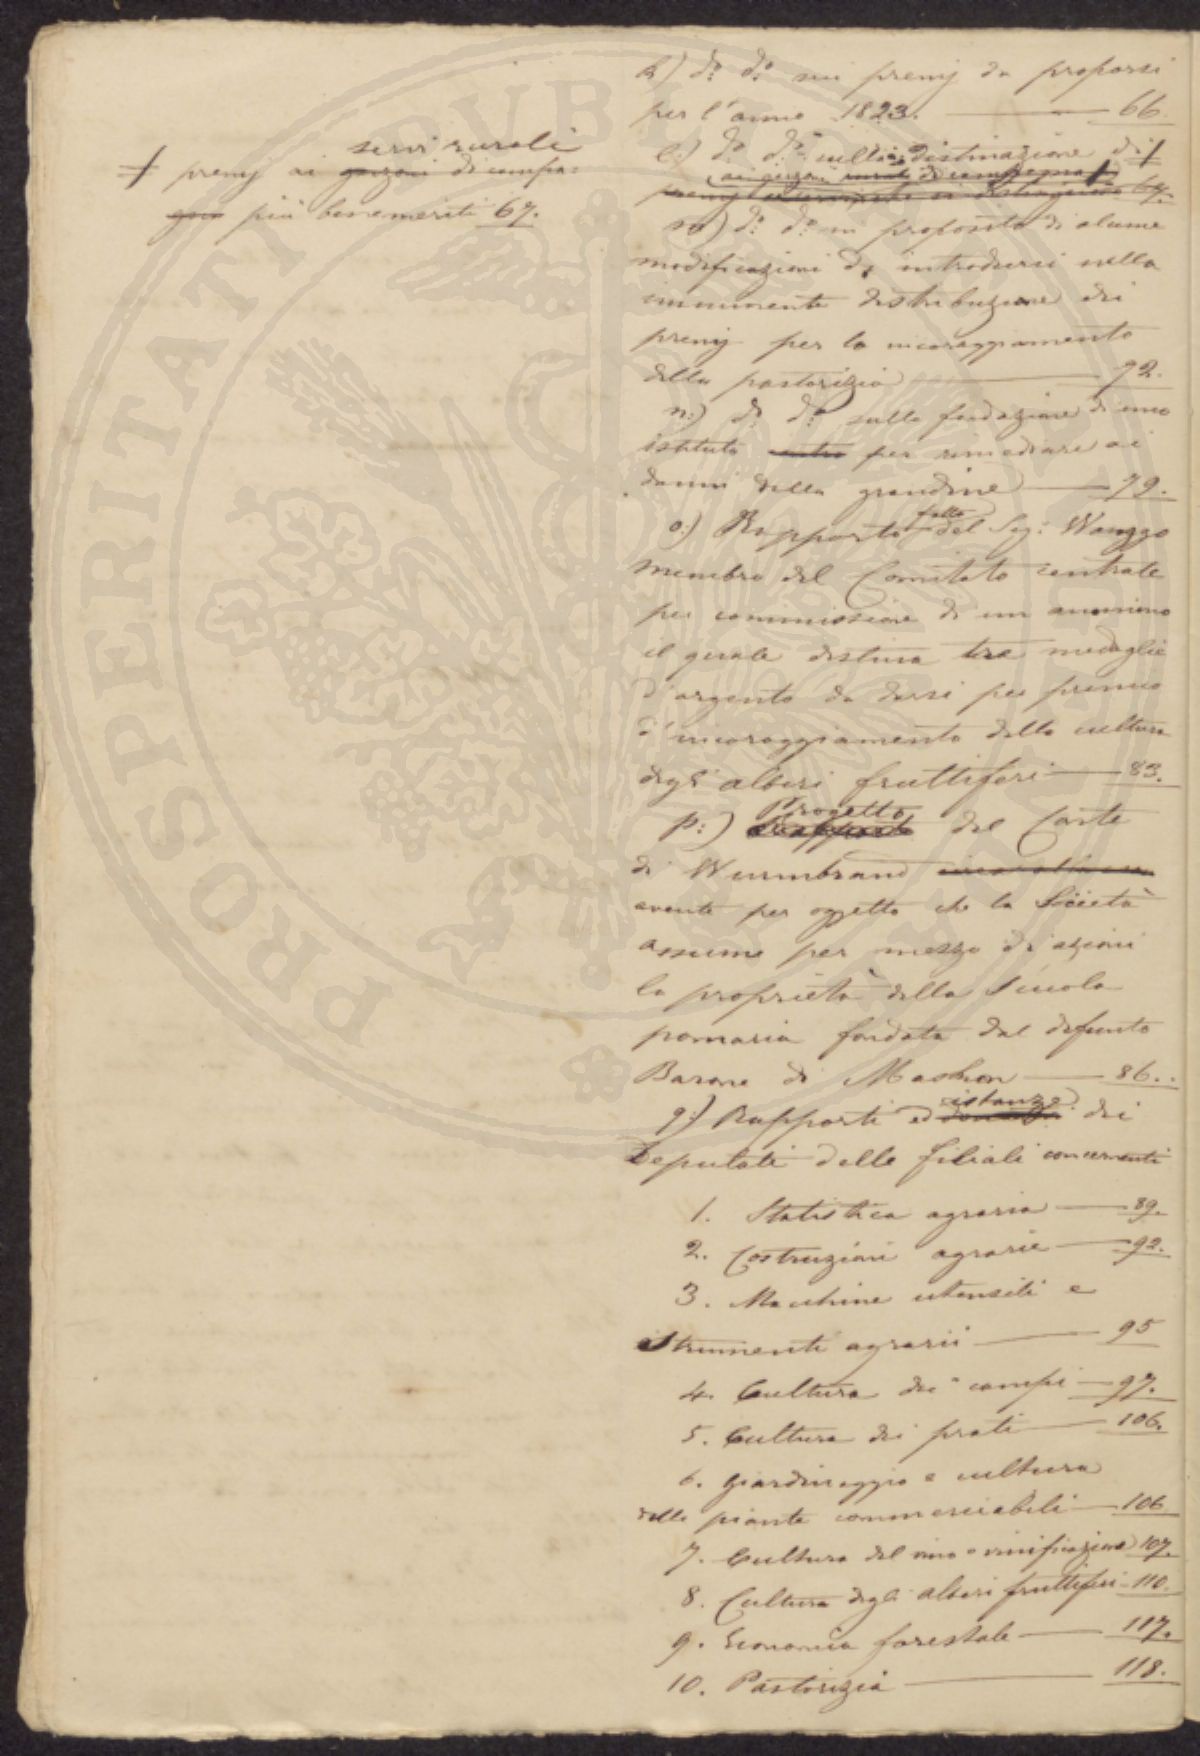 k) d:º d:º sui premj da proporsi
per l'anno 1823. 66.
l:) d:º d:º sulla distinazione di
ai garzoni rurali di campagna
premj 67.
servi rurali
premj ai garzoni di campa=
gna più benemeriti 67.
m) d:º d:º in proposito di alcune
modificazioni da introdursi nella
imminente distribuzione dei
premj per lo incoraggiamento
della pastorizia 72.
n:) d:º d:º sulla fondazione di uno
istituto contro per rimediare ai
danni della grandine 79.
o.) Rapporto fatto dal Sig: Wanggo
membro del Comitato centrale
per commissione di un anonimo
il quale destina tre medaglie
d'argento da darsi per premio
d'incoraggiamento della cultura
degli alberi fruttiferi 83.
p:) Progetto del Conte
di Wurmbrand
avente per oggetto che la Società
assuma per mezzo di azioni
la proprietà della Scuola
pomaria fondata dal defunto
Barone di Maskon 86.
q:) Rapporti ed istanze dei
Deputati delle filiali concernenti
1. Statistica agraria 89.
2. Costruzioni agrarie 92.
3. Macchine utensili e
Strumenti agrarii 95
4. Cultura dei campi 97.
5. Cultura dei prati 106.
6. Giardinaggio e cultura
delle piante commerciabili 106
7. Cultura del vino e vinificazione 107.
8. Cultura degli alberi fruttiferi 110.
9. Economia forestale 117.
10. Pastorizia 118.
PROSPERITATI PVBLICAE